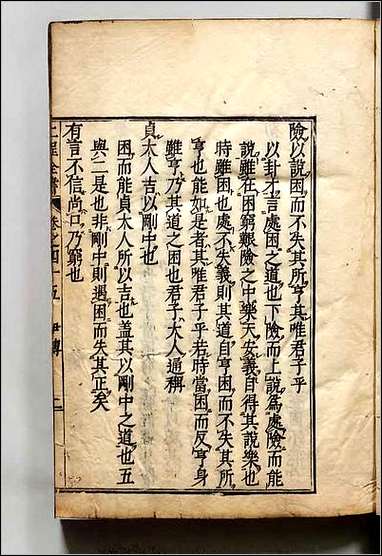 險以說困而不失其所亨其唯君子乎
以卦才言處困之道也下險而上說爲處險而能
說雖在困窮艱險之中樂天安義自得其說樂也
時雖困也處不失義則其道自亨困而不失其所
亨也能如是者其唯君子乎若時當困而反亨身
雖亨乃其道之困也君子大人通稱
貞大人吉以剛中也
困而能貞大人所以吉也蓋其以剛中之道也五
與二是也非剛中則遇困而失其正矣
有言不信尚口乃窮也
二程全書 卷之四十五 伊傳 二